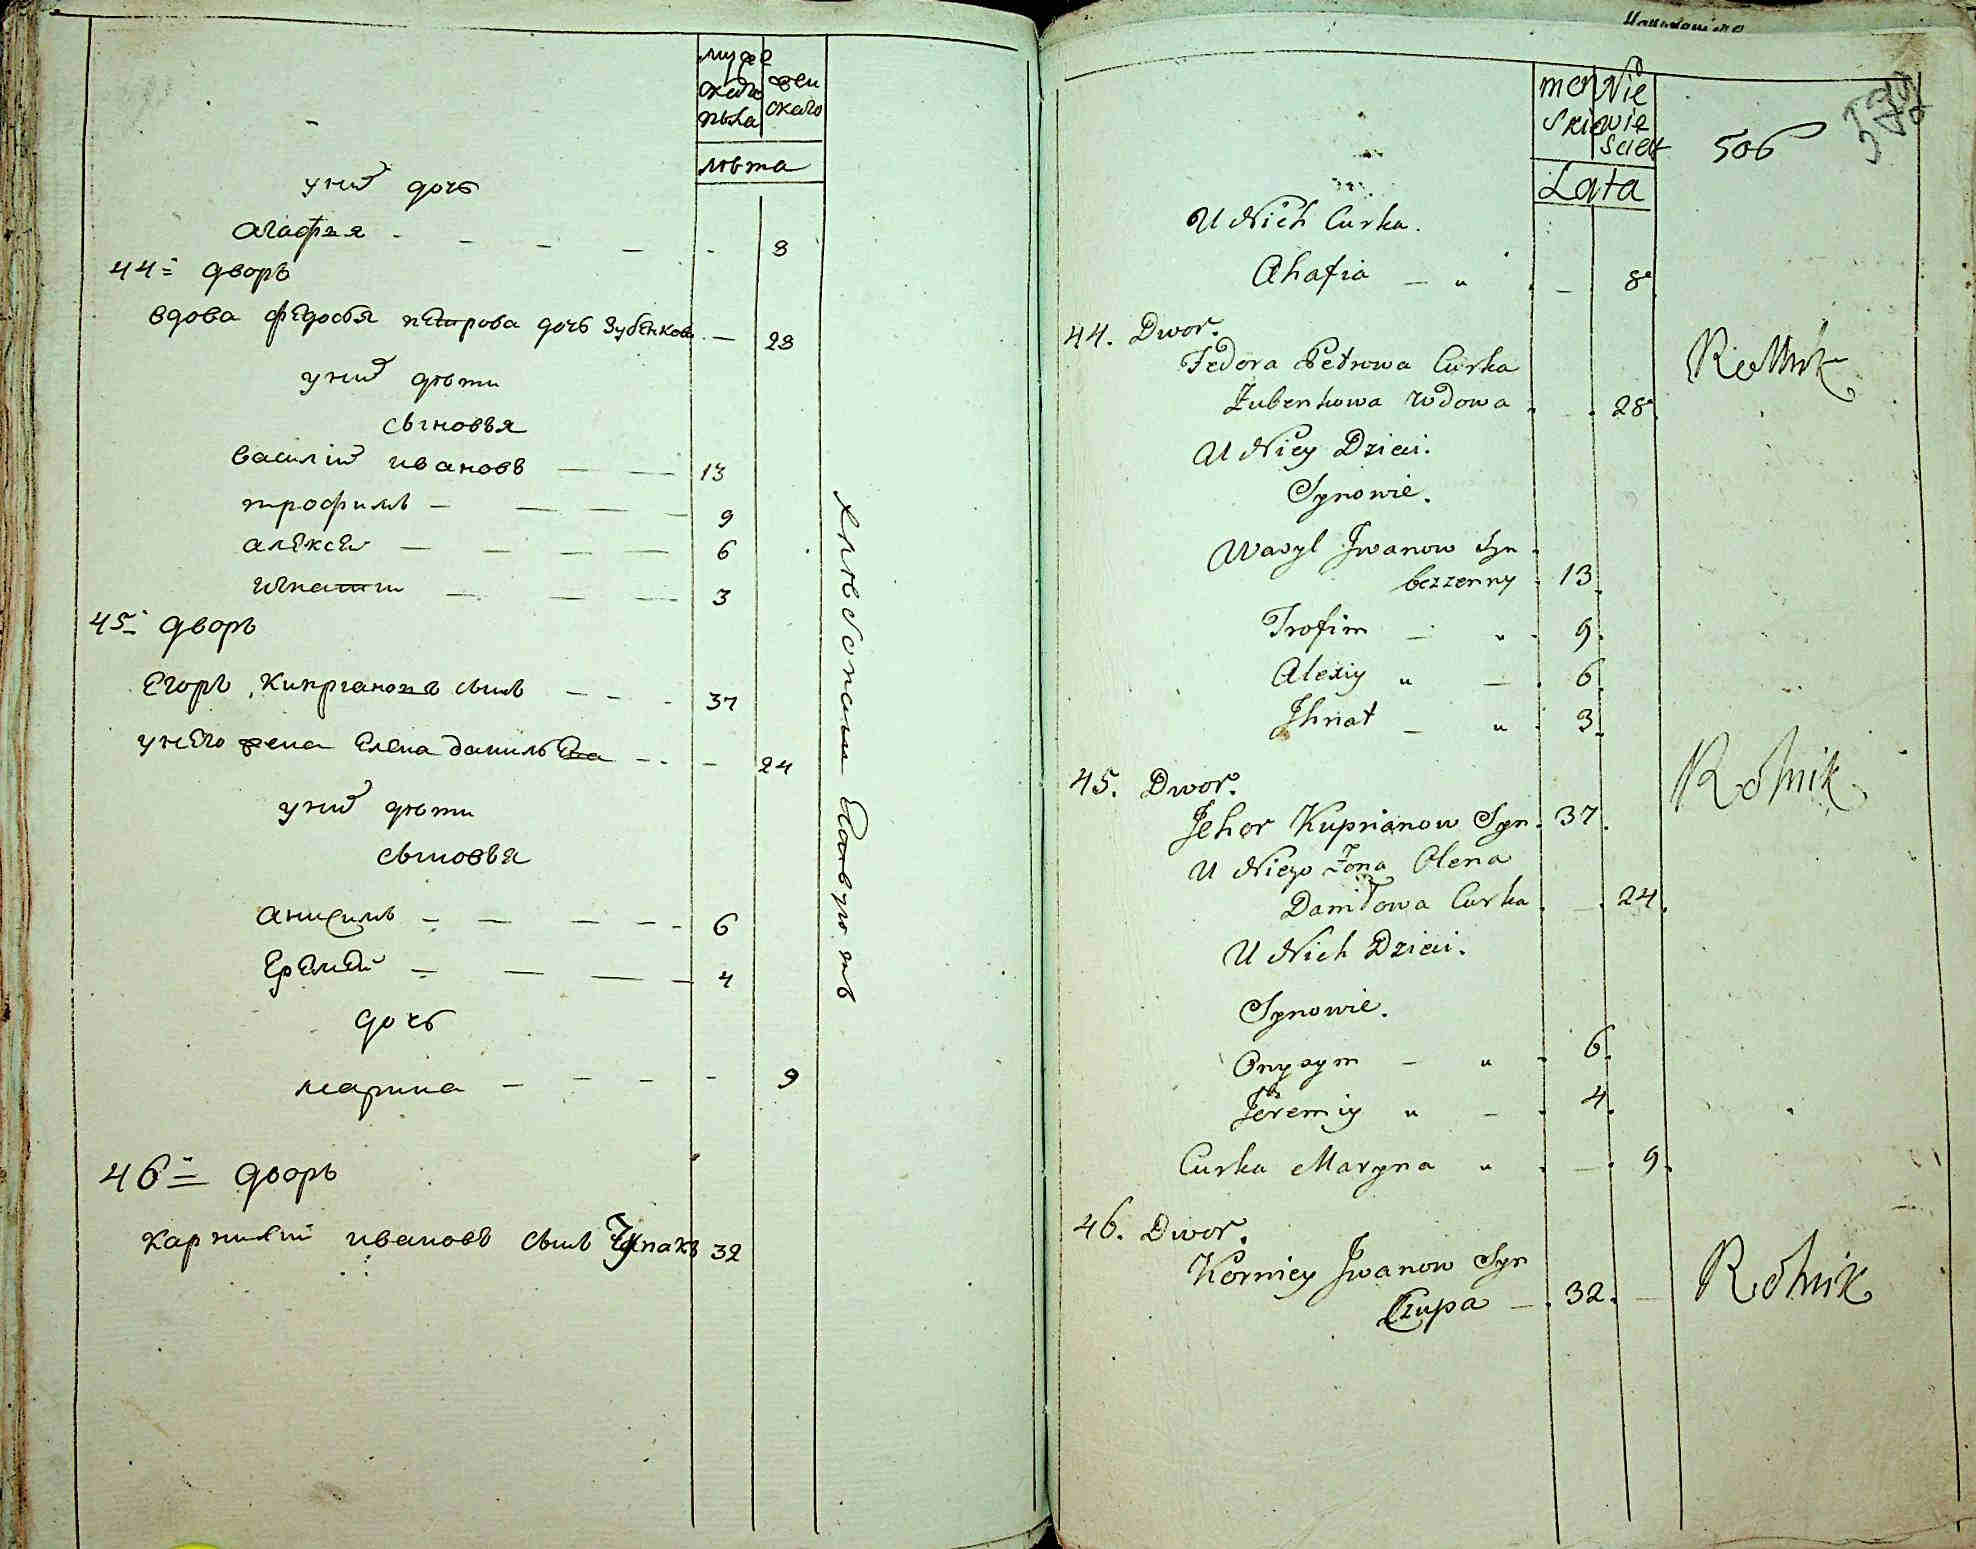 муже
скаго
пола
жен
скаго
лѣта
у них дочь
агафья - - - - - 8
44й дворъ
вдова федосья петрова дочь Зубенкова - 28
у ней дѣти
сыновья
василій ивановъ - - 13
трофимъ - - - - 9
алексей - - - - 6
игнатий - - - 3
45й дворъ
Егоръ Киприановъ сынъ - - - 37
у него жена Елена данильева - - - 24
у них дѣти
сыновья
анисимъ - - - - 6
Еремей - - - - 4
дочь
марина - - - - - 9
46й дворъ
карнилий ивановъ сынъ 32
хлебопашествуютъ
męs
skie
Nie
wie
scie
Lata
506
U Nich Curka.
Ahafia - " - 8
44. Dwor.
Fedora Petrowa Curka
Zubenkowa Wdowa - 28
Rolnik
U Niey Dzieci.
Synowie.
Wasyl Jwanow Syn
bezzenny 13
Trofim - " 9.
Alexiy " - 6
Jhnat - " 3
45. Dwor.
Rolnik
Jehor Kuprianow Syn 37
U Niego Żona Olena
Daniłowa Curka - 24
U Nich Dzieci.
Synowie.
Onysym - " 6
Jeremiy " - 4
Curka Maryna " - 9.
46. Dwor.
Korniey Jwanow Syn
Czupa - 32. -
Rolnik